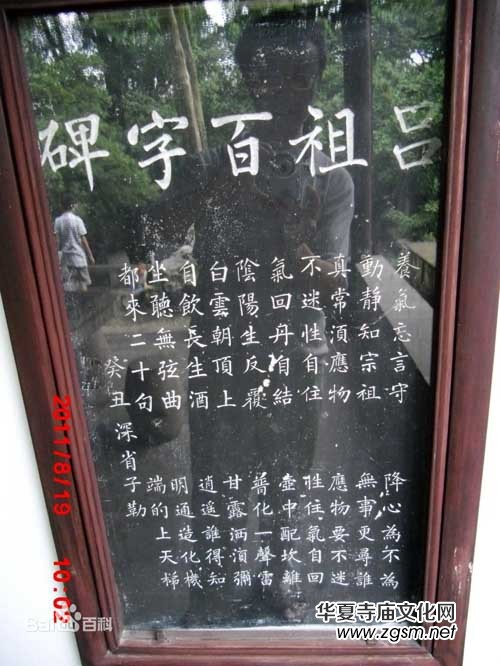 吕祖百字碑
養氣忘言守
降心為不為
動靜知宗祖
無事更尋誰
真常湏應物
應物要不迷
不迷性自住
性住氣自回
氣回丹自結
壺中配坎離
陰陽生反覆
普化一聲雷
白雲朝頂上
甘露洒湏彌
自飲長生酒
逍遙誰得知
坐聽無弦曲
明通造化機
都來二十句
端的上天梯
癸丑 深省子勒
2011/8/19 10:02
Bai百科
华夏寺庙文化网
www.zgsm.net